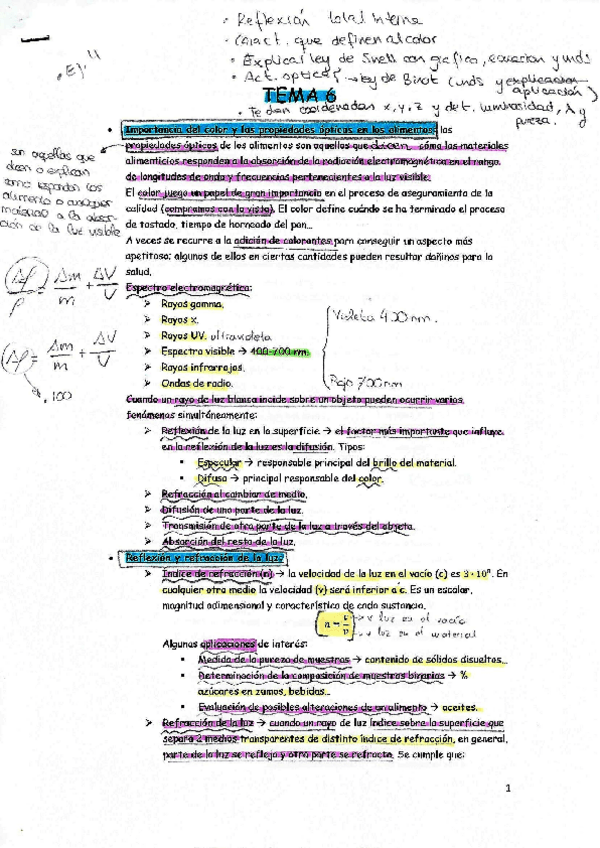 · Reflexión total interna
· Caract. que definen al color
· Explicar ley de Snell con gráfico, ecuacion y unds
· Act. optica → ley de Biot (unds y explicación aplicación)
· Te dan coordenadas x, y, z y det. luminosidad, λ y pureza.
"EJ"
TEMA 6
• Importancia del color y las propiedades ópticas en los alimentos: las
propiedades ópticas de los alimentos son aquellas que dicen cómo los materiales
alimenticios responden a la absorción de la radiación electromagnética en el rango
de longitudes de onda y frecuencias pertenecientes a la luz visible.
son aquellas que
dicen o explican
como responden los
alimento o cualquier
material a la absor-
ción de la luz visible
El color juega un papel de gran importancia en el proceso de aseguramiento de la
calidad (compramos con la vista). El color define cuándo se ha terminado el proceso
de tostado, tiempo de horneado del pan...
A veces se recurre a la adición de colorantes para conseguir un aspecto más
apetitoso; algunos de ellos en ciertas cantidades pueden resultar dañinos para la
salud.
Δρ/ρ = Δm/m + ΔV/V
Espectro electromagnético:
➢ Rayos gamma.
➢ Rayos x.
➢ Rayos UV. ultravioleta
➢ Espectro visible → 400-700 nm.
➢ Rayos infrarrojos.
➢ Ondas de radio.
Violeta 400 nm.
Rojo 700 nm
Δρ = Δm/m + ΔV/V
. 100
Cuando un rayo de luz blanca incide sobre un objeto pueden ocurrir varios
fenómenos simultáneamente:
➢ Reflexión de la luz en la superficie → el factor más importante que influye
en la reflexión de la luz es la difusión. Tipos:
▪ Especular → responsable principal del brillo del material.
▪ Difusa → principal responsable del color.
➢ Refracción al cambiar de medio.
➢ Difusión de una parte de la luz.
➢ Transmisión de otra parte de la luz a través del objeto.
➢ Absorción del resto de la luz.
• Reflexión y refracción de la luz:
➢ Índice de refracción (n) → la velocidad de la luz en el vacío (c) es 3 · 10⁸. En
cualquier otro medio la velocidad (v) será inferior a c. Es un escalar,
magnitud adimensional y característico de cada sustancia.
n = c/v → v luz en el vacío
→ v luz en el material
Algunas aplicaciones de interés:
▪ Medida de la pureza de muestras → contenido de sólidos disueltos...
▪ Determinación de la composición de muestras binarias → %
azúcares en zumos, bebidas...
▪ Evaluación de posibles alteraciones de un alimento → aceites.
➢ Refracción de la luz → cuando un rayo de luz índice sobre la superficie que
separa 2 medios transparentes de distinto índice de refracción, en general,
parte de la luz se refleja y otra parte se refracta. Se cumple que:
1